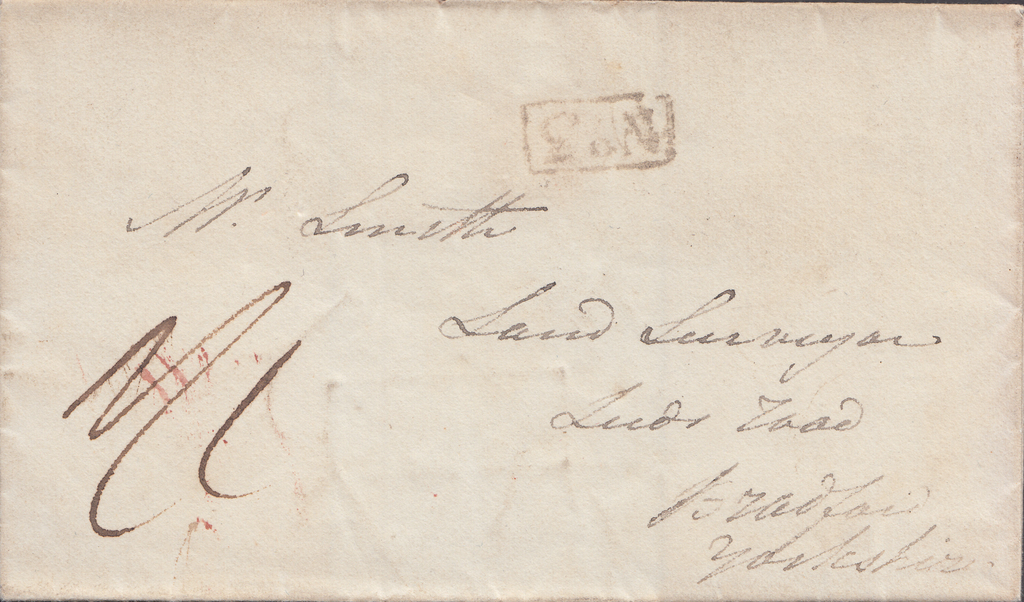 No. 3
Mr. Smith
Land Surveyor
Leeds Road
Bradford
Yorkshire